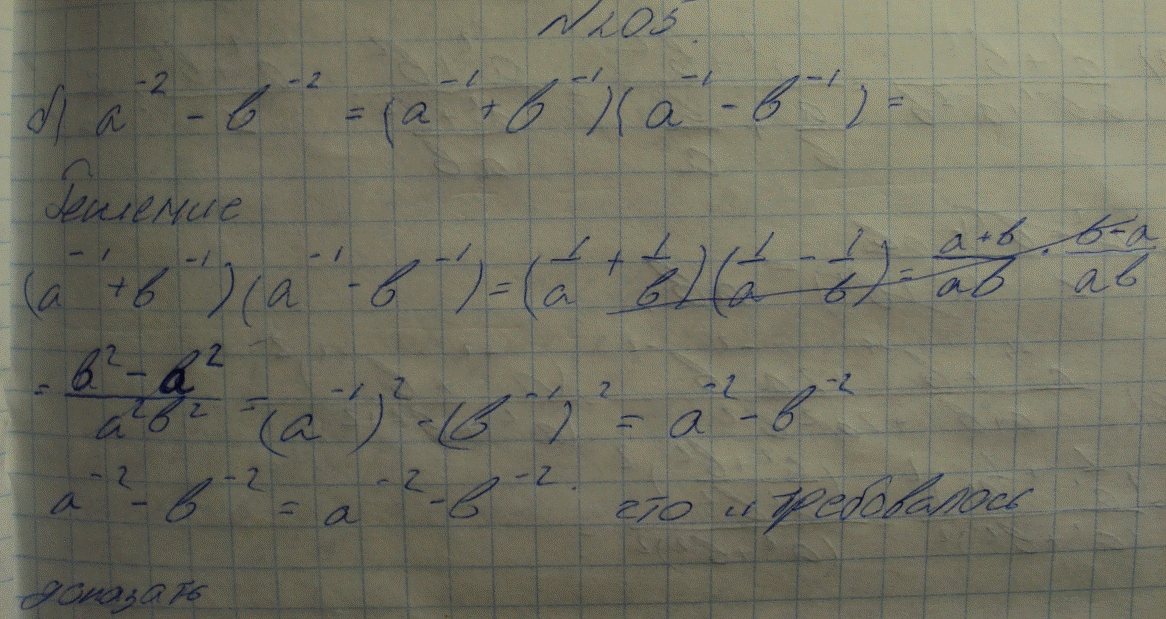 №205.
б) a⁻² - b⁻² = (a⁻¹ + b⁻¹)(a⁻¹ - b⁻¹) =
Решение
(a⁻¹ + b⁻¹)(a⁻¹ - b⁻¹) = (1/a + 1/b)(1/a - 1/b) = (a+b)/(ab) · (b-a)/(ab)
= (b² - a²)/(a²b²) = (a⁻¹)² - (b⁻¹)² = a⁻² - b⁻²
a⁻² - b⁻² = a⁻² - b⁻². что и требовалось
доказать